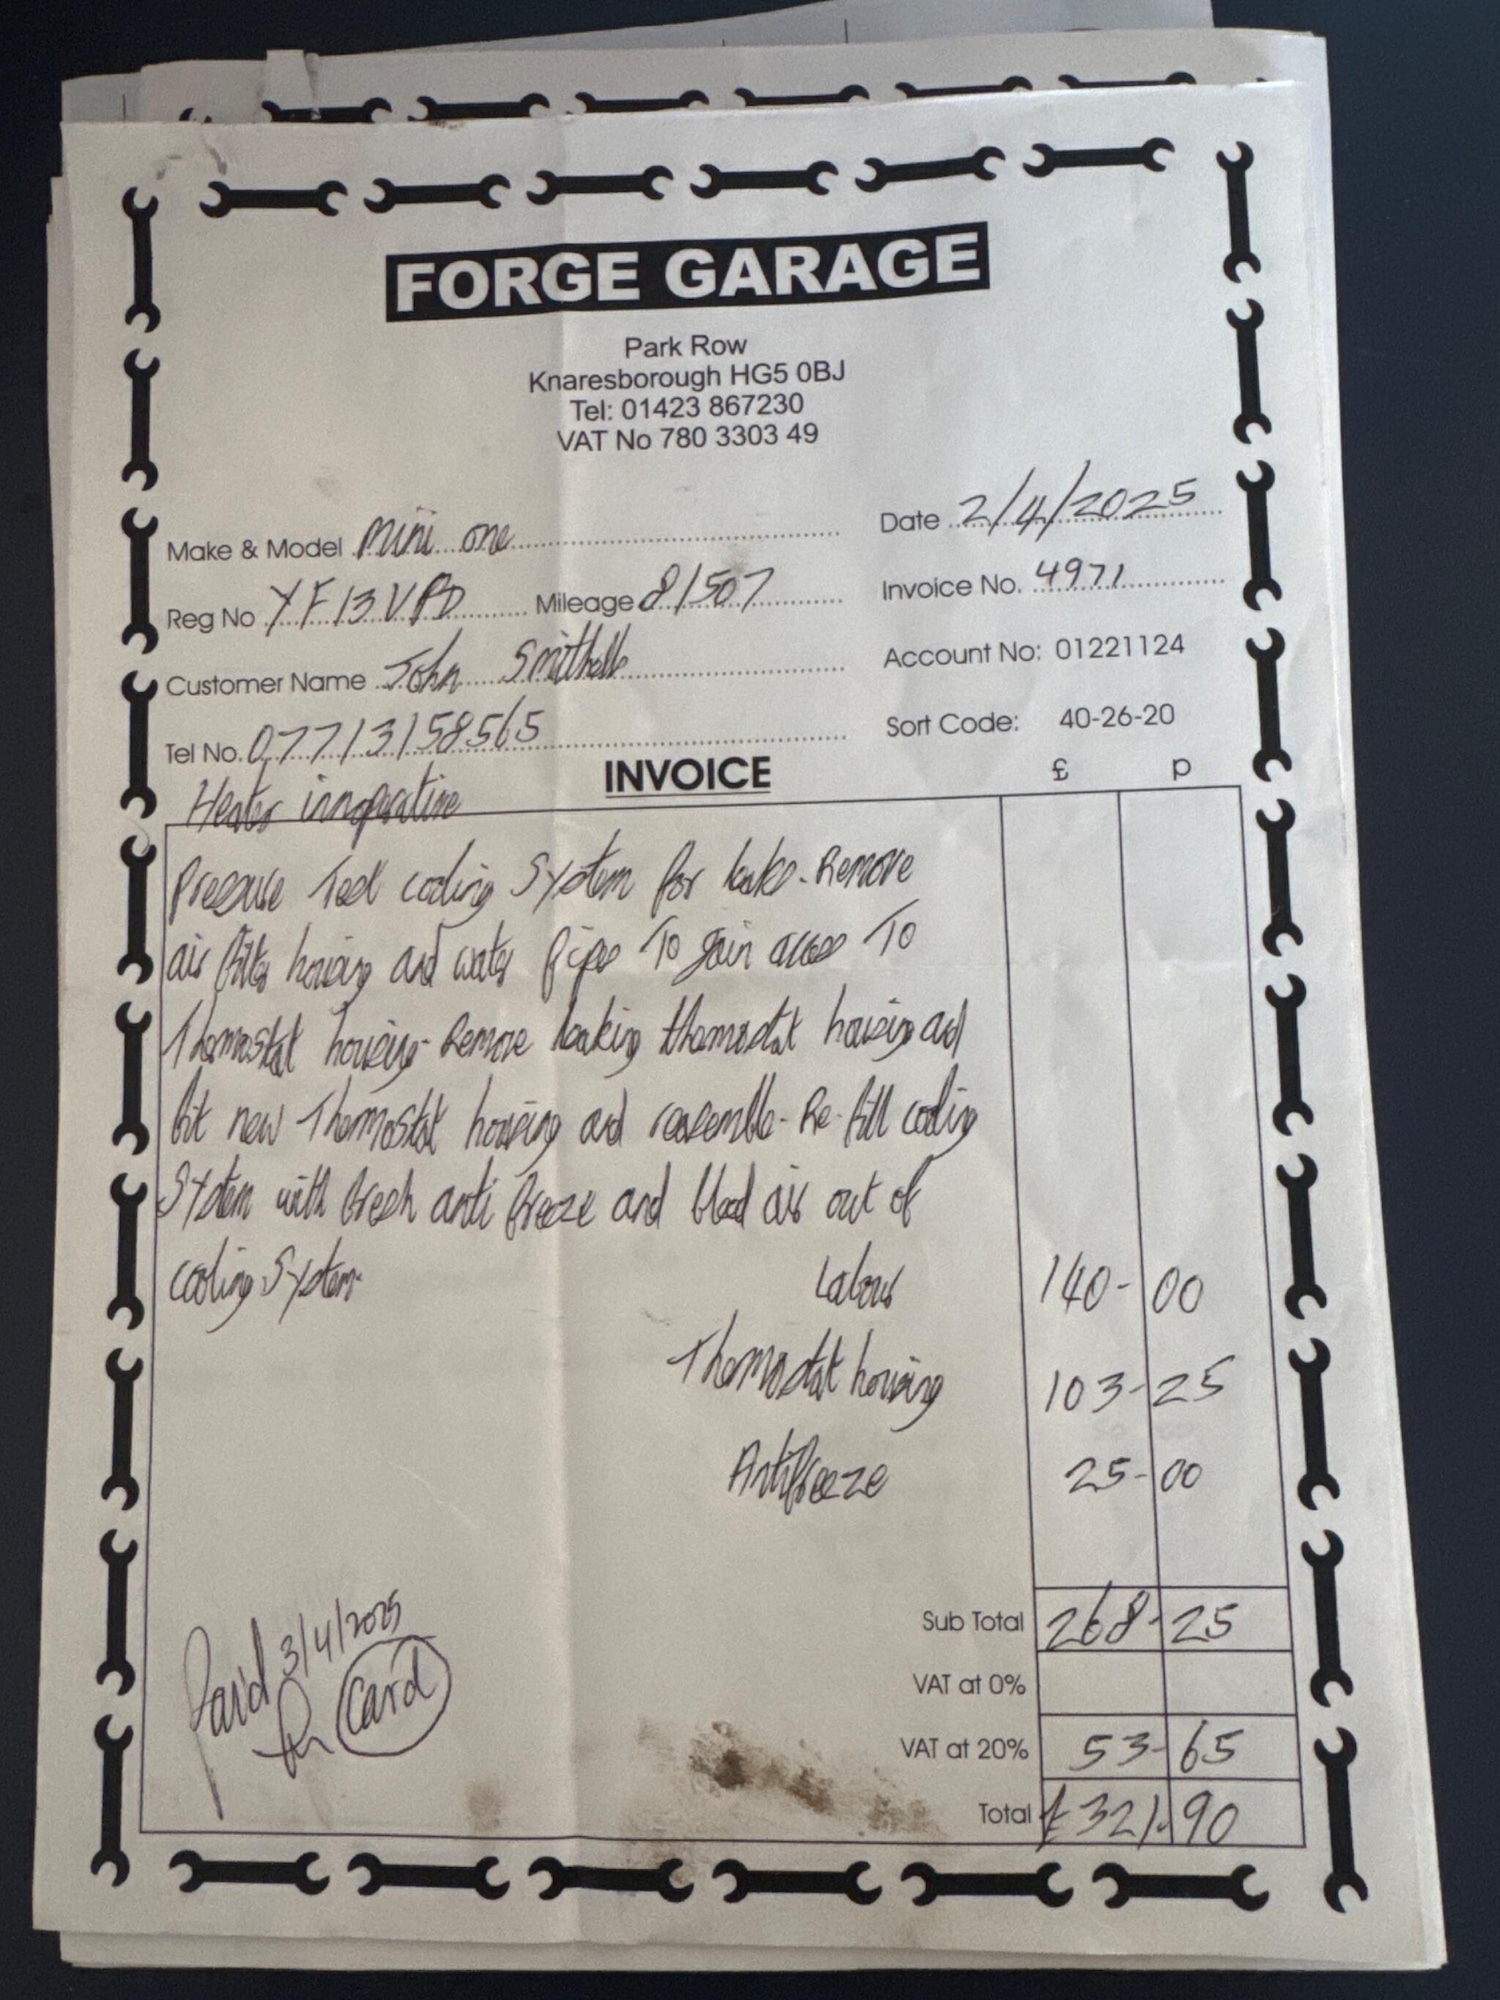 FORGE GARAGE
Park Row
Knaresborough HG5 0BJ
Tel: 01423 867230
VAT No 780 3303 49
Make & Model Mini one
Date 2/4/2025
Reg No YF13VPD Mileage 81507
Invoice No. 4971
Customer Name John
Account No: 01221124
Tel No. 07713158565
Sort Code: 40-26-20
INVOICE
£ p
Heater innoperative
Pressure Test cooling System for leaks - Remove
air filter housing and water pipes To gain access To
Thermostat housing - Remove leaking thermostat housing and
fit new Thermostat housing and reassemble - Re-fill cooling
System with fresh anti freeze and bleed air out of
cooling System
Labour 140-00
Thermostat housing 103-25
Antifreeze 25-00
Sub Total 268-25
VAT at 0%
VAT at 20% 53-65
Total £321.90
Paid 3/4/2025
Card